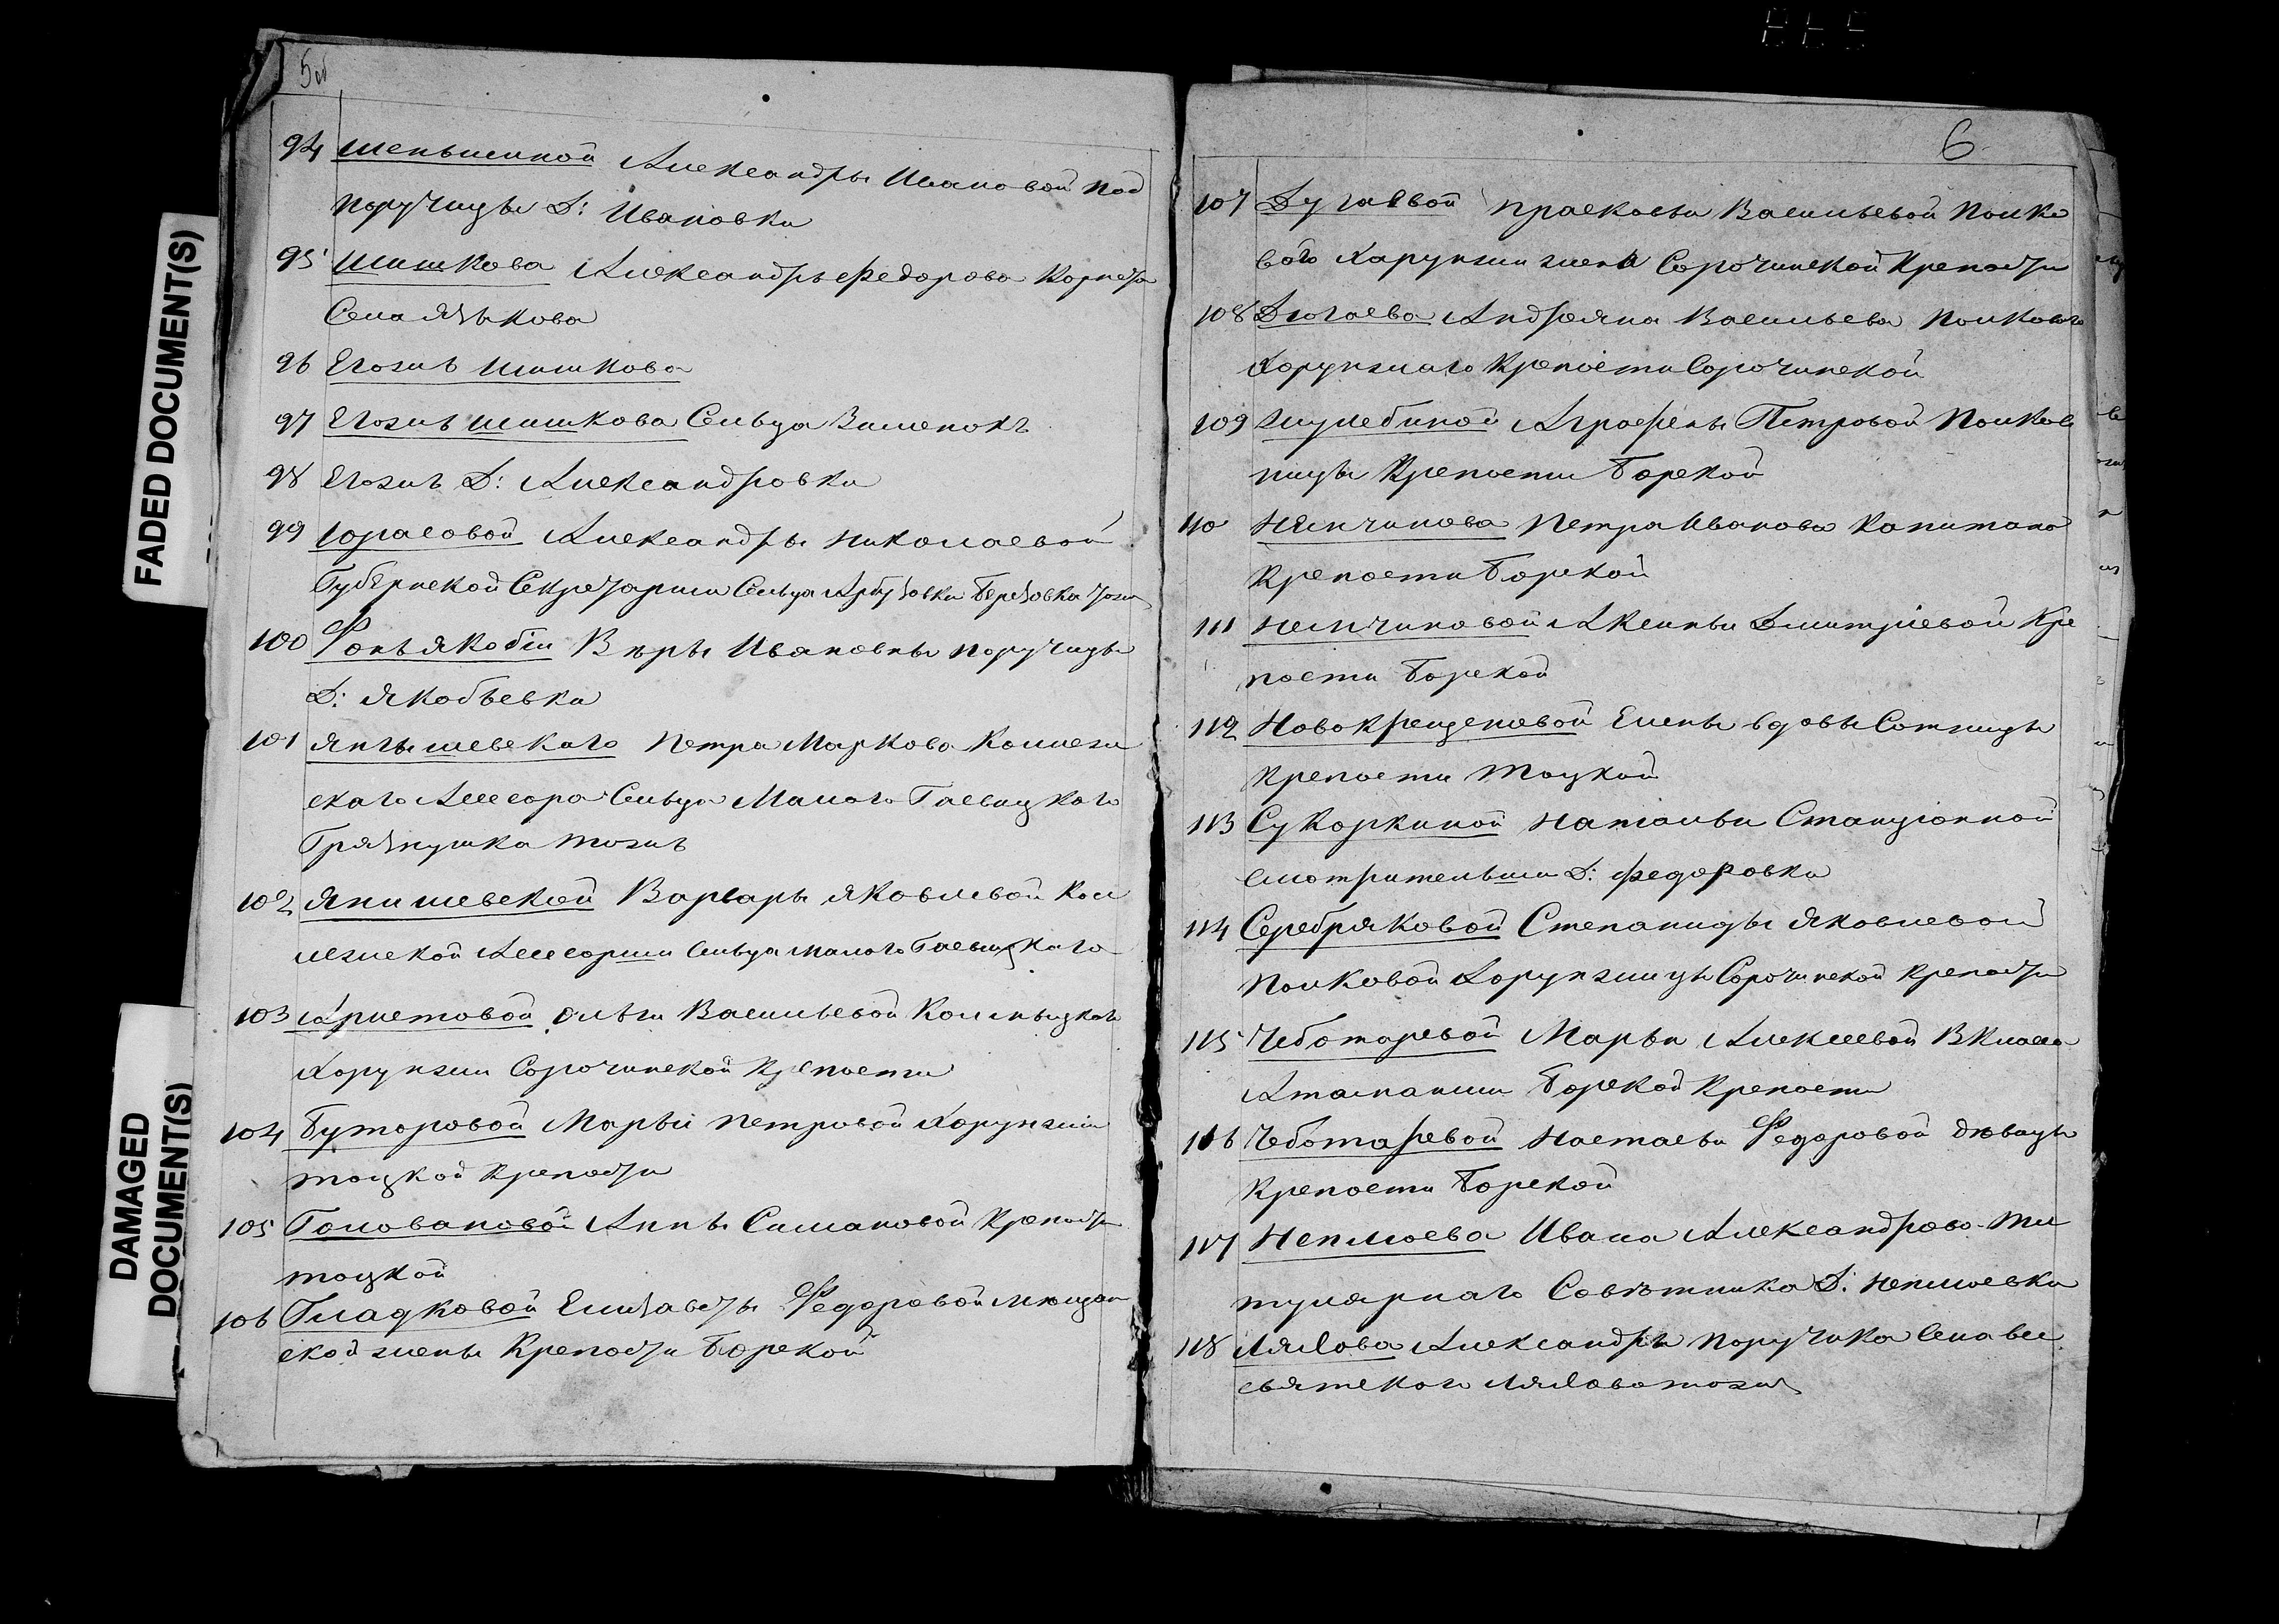 5об
94 Меньшиной Александры Ивановой Под
поручицы Д: Ивановки
95 Шишкова Александръ Федорова Корнета
Села Языкова
96 Егожъ Шишкова
97 Егожъ Шишкова Сельца Вишенокъ
98 Егожъ Д: Александровки
99 Юрасовой Александры Николаевой
Губернской Секретарши Сельца Арбузовки Березовка тожъ
100 Фонъ Якобіи Веры Ивановны поручицы
Д: Якобьевки
101 Янишевскаго Петра Маркова Коллеж
скаго Ассесора Сельца Малаго Гаевицкаго
Грязнушка тожъ
102 Янишевской Варвары Яковлевой Кол
лежской Ассесорши Сельца Малаго Гаевицкаго
103 Аристовой Ольги Васильевой
Хорунжи Сорочинской Крепости
104 Буторовой Марьи Петровой Хорунжіи
тоцкой Крепости
105 Головановой Анны Симановой Крепости
тоцкой
106 Гладковой Елизаветы Федоровой мещан
ской жены Крепости Борской
6
107 Дугаевой Прасковьи Васильевой Полко
вого Харунжи жена Сорочинской Крепости
108 Дюгаева Андреяна Васильева Полковаго
Хорунжаго Крепости Сорочинской
109 Жулебиной Аграфены Петровой Полков
ницы Крепости Борской
110 Нямчинова Петра Иванова Капитана
Крепости Борской
111 Немчиновой Аксиньи Дмитріевой Кре
пости Борской
112 Новокрещеновой Елены вдовы Сотницы
Крепости Тоцкой
113 Сукоркиной Натальи Станціонной
смотрительши Д: Федоровки
114 Серебряковой Степаниды Яковлевой
Полковой Хорунжицы Сорочинской Крепости
115 Чеботаревой Марьи Алексеевой В Класса
Атаманши Борской Крепости
116 Чеботаревой Настасьи Федоровой девицы
Крепости Борской
117 Неплюева Ивана Александрова Ти
тулярнаго Советника Д: Неплюевки
118 Ляхова Александра поручика Села Все
святскаго Ляхова тожъ
FADED DOCUMENT(S)
DAMAGED
DOCUMENT(S)